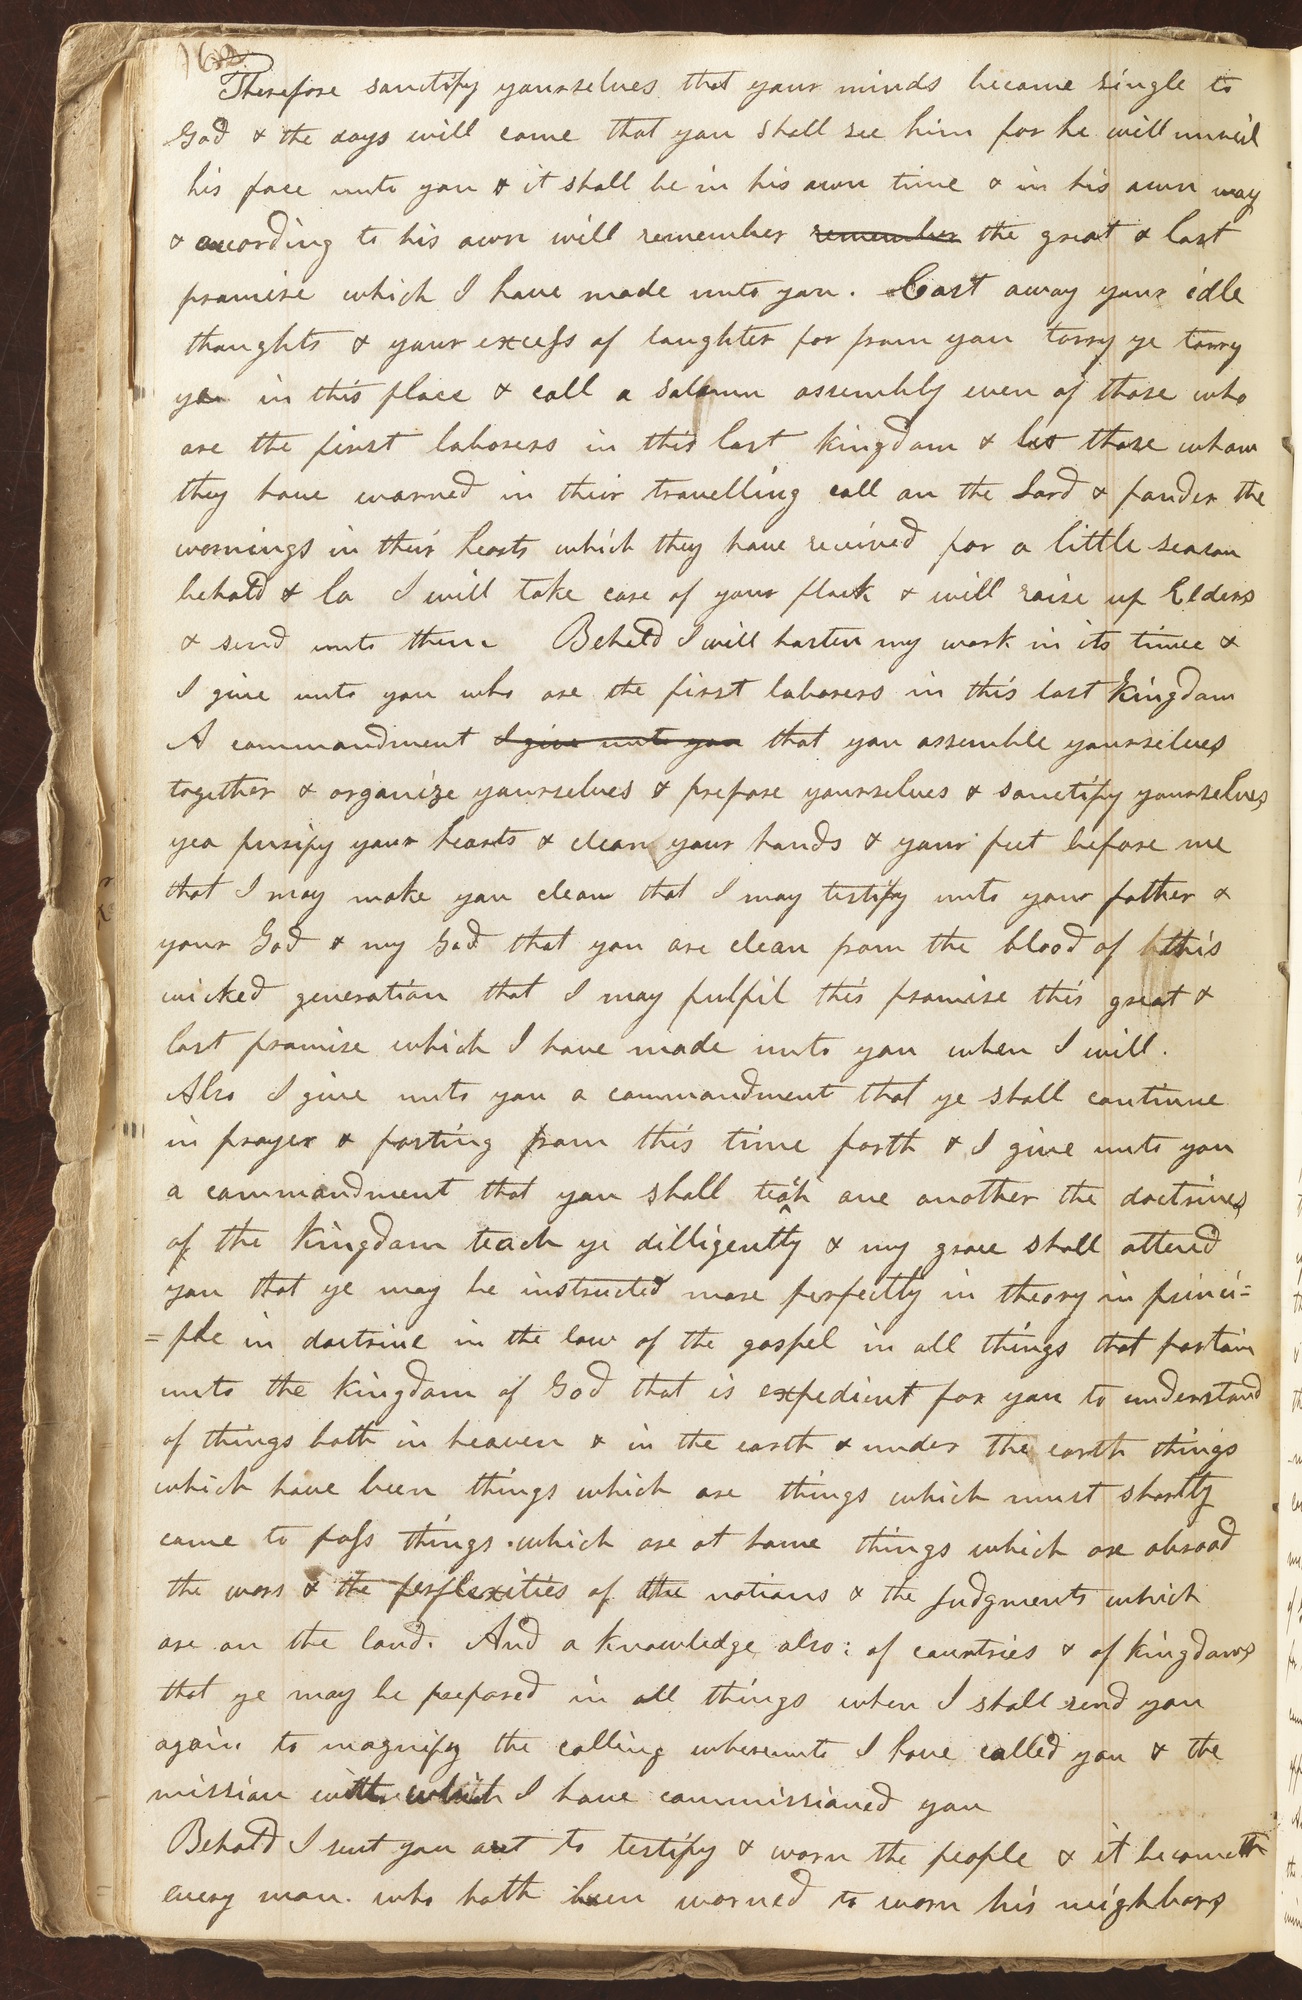 162
Therefore sanctify yourselves that your minds become single to
God & the days will come that you shall see him for he will unveil
his face unto you & it shall be in his own time & in his own way
& according to his own will remember remember the great & last
promise which I have made unto you. Cast away your idle
thoughts & your excess of laughter far from you tarry ye tarry
ye in this place & call a solemn assembly even of those who
are the first laborers in this last kingdom & let those whom
they have warned in their travelling call on the Lord & ponder the
warnings in their hearts which they have recieved for a little season
behold & lo I will take care of your flock & will raise up Elders
& send unto them Behold I will hasten my work in its time &
I give unto you who are the first laborers in this last kingdom
A commandment I give unto you that you assemble yourselves
together & organize yourselves & prepare yourselves & sanctify yourselves
yea purify your hearts & clean your hands & your feet before me
that I may make you clean that I may testify unto your father &
your God & my God that you are clean from the blood of this
wicked generation that I may fulfil this promise this great &
last promise which I have made unto you when I will.
Also I give unto you a commandment that ye shall continue
in prayer & fasting from this time forth & I give unto you
a commandment that you shall teach one another the doctrines
of the kingdom teach ye dilligently & my grace shall attend
you that ye may be instructed more perfectly in theory in princi=
=ple in doctrine in the law of the gospel in all things that partain
unto the kingdom of God that is expedient for you to understand
of things both in heaven & in the earth & under the earth things
which have been things which are things which must shortly
come to pass things which are at home things which are abroad
the wars & the perplexities of the nations & the Judgments which
are on the land. And a knowledge also: of countries & of kingdoms
that ye may be prepared in all things when I shall send you
again to magnify the calling whereunto I have called you & the
mission with which I have commissioned you
Behold I sent you out to testify & warn the people & it becometh
every man who hath been warned to warn his neighbors